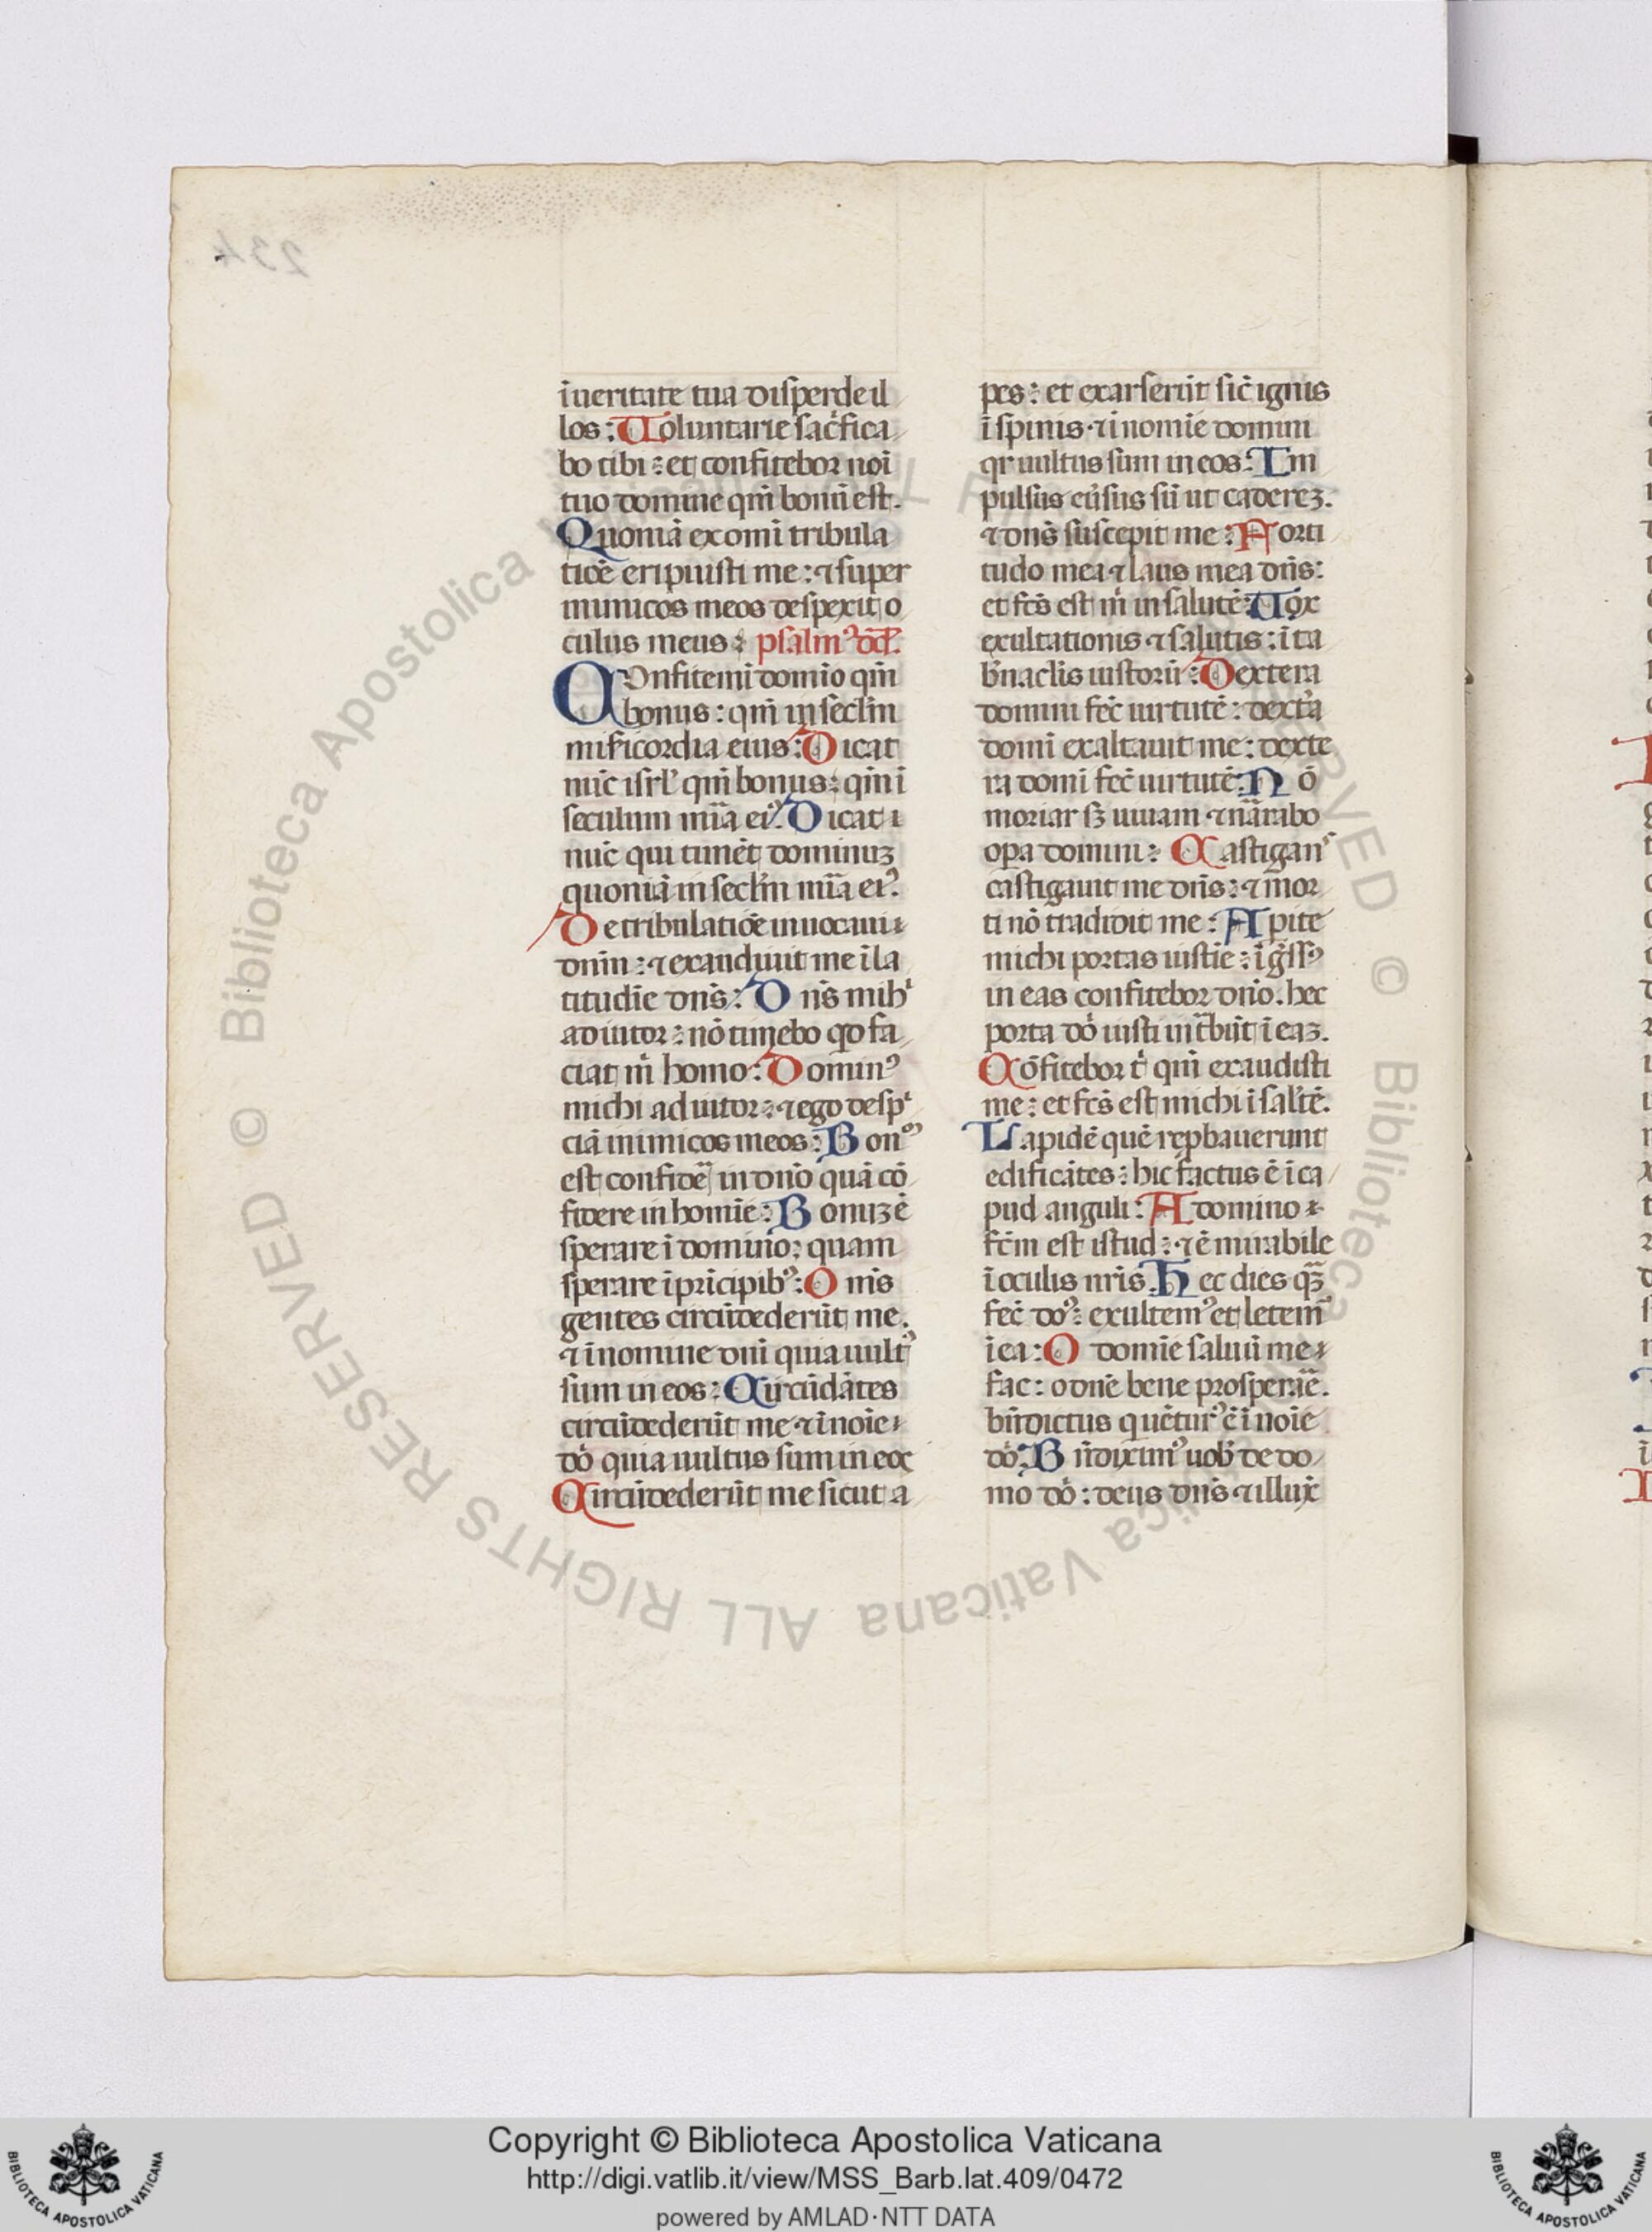 ī ueritate tua disperde il
los : Uoluntarie sac̄fica
bo tibi : et confitebor noī
tuo domine qm̄ bonū est.
Quoniā ex omī tribula
tiōe eripuisti me : ⁊ super
inimicos meos despexit o
culus meus : psalm᷒ dd̄.
COnfitemī domīo qm̄
bonus : qm̄ in secl̄m
mīficordia eius : Dicat
nūc isrl̄ qm̄ bonus : qm̄ ī
seculum mīa ei᷒. Dicāt
nūc qui timēt dominuꝫ
quoniā in secl̄m mīa ei᷒.
De tribulatiōe inuocaui
dnm̄ : ⁊ exaudiuit me ī la
titudīe dn̄s : Dn̄s mihi
adiutor : nō timebo qd fa
ciat m̄ homo : Domin᷒
michi adiutor : ⁊ ego desp
ciā inimicos meos : Bon᷒
est confidē in dn̄o quā cō
fidere in homīe : Bonuꝫ ē
sperare ī domino : quam
sperare ī pricipib᷒ : Om̄s
gentes circūdederūt me.
⁊ ī nomine dni quia ult᷒
sum in eos : Circūdātes
circūdederūt me ⁊ ī noīe
dō quia ultus sum in eos
Circūdederūt me sicut a
pes : et exarserūt sic̄ ignis
ī spinis · ⁊ ī nomīe domini
qr ultus sum in eos : Im
pulsus eūsus sū ut cadereꝫ.
⁊ dn̄s suscepit me : Forti
tudo mea ⁊ laus mea dn̄s :
et fc̄s est m̄ in salutē : Uox
exultationis ⁊ salutis : ī ta
b̄naclis iustorū : Dextera
domini fec̄ uirtutē : dext̄a
domī exaltauit me : dexte
ra domī fec̄ uirtutē : Nō
moriar sꝫ uiuam ⁊ nārabo
opa domini : Castigans
castigauit me dn̄s : ⁊ mor
ti nō tradidit me : Apite
michi portas iustie : īḡss᷒
in eas confitebor dn̄o. hec
porta dō iusti int̄būt ī eaꝫ.
Cōfitebor t̄ qm̄ exaudisti
me : et fc̄s est michi ī sal̄tē.
Lapidē quē repbauerunt
edificātes : hic factus ē ī ca
pud anguli : A domino
fc̄m est istud : ⁊ ē mirabile
ī oculis nr̄is. Hec dies qꝫ
fec̄ do᷒ : exultem᷒ et letem᷒
ī ea : O domīe saluū me
fac : o dn̄e bene prosperāē.
bn̄dictus q uētur᷒ ē ī noīe
dō. Bn̄diximi᷒ uob̄ de do
mo dō : deus dn̄s ⁊ illux̄
234
Copyright © Biblioteca Apostolica Vaticana
http://digi.vatlib.it/view/MSS_Barb.lat.409/0472
powered by AMLAD·NTT DATA
BIBLIOTECA APOSTOLICA VATICANA
BIBLIOTECA APOSTOLICA VATICANA
© Biblioteca Apostolica Vaticana ALL RIGHTS RESERVED
© Biblioteca Apostolica Vaticana ALL RIGHTS RESERVED